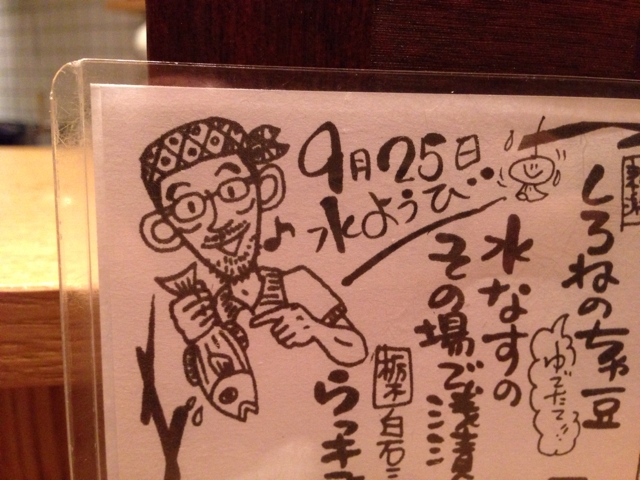 9月25日
水ようび
しろねの茶豆
ゆでたて!!
水なすの
その場で浅漬
栃木
白石
らっキ